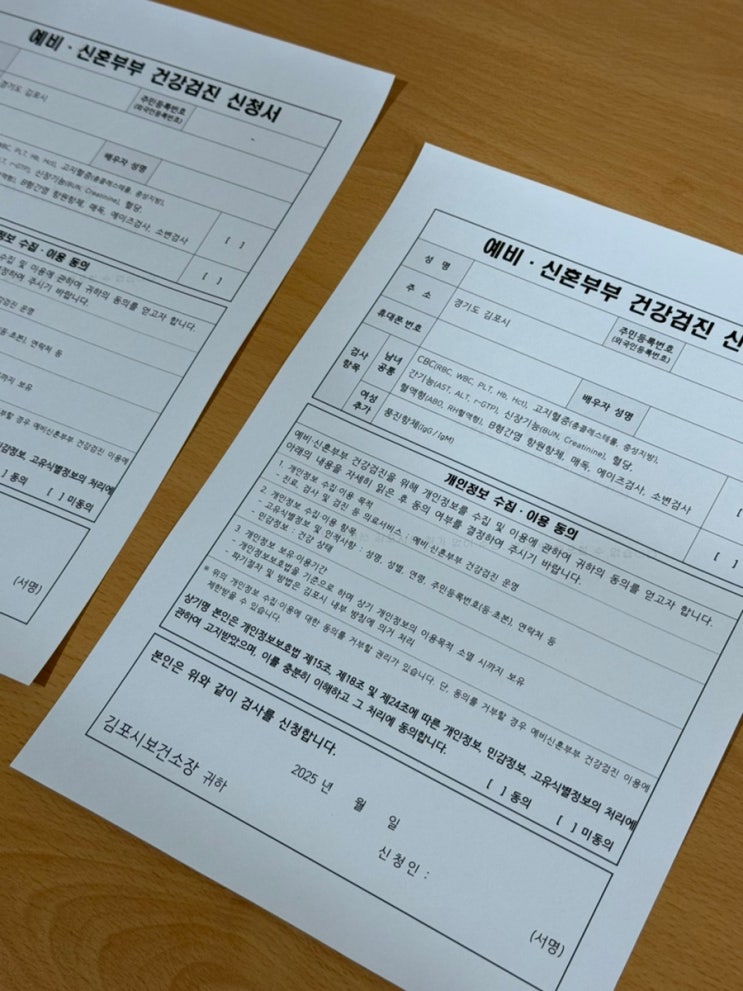 예비 · 신혼부부 건강검진 신청서
경기도 김포시
주민등록번호
(외국인등록번호)
-
배우자 성명
WBC, PLT, Hb, Hct), 고지혈증(총콜레스테롤, 중성지방),
r-GTP), 신장기능(BUN, Creatinine), 혈당,
B형간염 항원항체, 매독, 에이즈검사, 소변검사
[ ]
[ ]
수집 · 이용 동의
수집 및 이용에 관하여 귀하의 동의를 얻고자 합니다.
주시기 바랍니다.
운영
연락처 등
보유
거부할 경우 예비신혼부부 건강검진 이용에
민감정보, 고유식별정보의 처리에
[ ] 동의 [ ] 미동의
(서명)
예비 · 신혼부부 건강검진 신
성 명
주 소
경기도 김포시
주민등록번호
(외국인등록번호)
휴대폰 번호
배우자 성명
검사
항목
남녀
공통
CBC(RBC, WBC, PLT, Hb, Hct), 고지혈증(총콜레스테롤, 중성지방),
간기능(AST, ALT, r-GTP), 신장기능(BUN, Creatinine), 혈당,
혈액형(ABO, RH혈액형), B형간염 항원항체, 매독, 에이즈검사, 소변검사
[
여성
추가
풍진항체(IgG / IgM)
[ ]
개인정보 수집 · 이용 동의
예비·신혼부부 건강검진을 위해 개인정보를 수집 및 이용에 관하여 귀하의 동의를 얻고자 합니다.
아래의 내용을 자세히 읽은 후 동의 여부를 결정하여 주시기 바랍니다.
1. 개인정보 수집·이용 목적
- 진료, 검사 및 검진 등 의료서비스 : 예비·신혼부부 건강검진 운영
2. 개인정보 수집·이용 항목
- 고유식별정보 및 인적사항 : 성명, 성별, 연령, 주민등록번호(등·초본), 연락처 등
- 민감정보 : 건강 상태
3. 개인정보 보유·이용기간
- 개인정보보호법을 기준으로 하며 상기 개인정보의 이용목적 소멸 시까지 보유
- 파기절차 및 방법은 김포시 내부 방침에 의거 처리
* 위의 개인정보 수집·이용에 대한 동의를 거부할 권리가 있습니다. 단, 동의를 거부할 경우 예비신혼부부 건강검진 이용에
제한받을 수 있습니다.
상기명 본인은 개인정보보호법 제15조, 제18조 및 제24조에 따른 개인정보, 민감정보, 고유식별정보의 처리에
관하여 고지받았으며, 이를 충분히 이해하고 그 처리에 동의합니다.
[ ] 동의 [ ] 미동의
본인은 위와 같이 검사를 신청합니다.
2025 년 월 일
신청인 :
(서명)
김포시보건소장 귀하